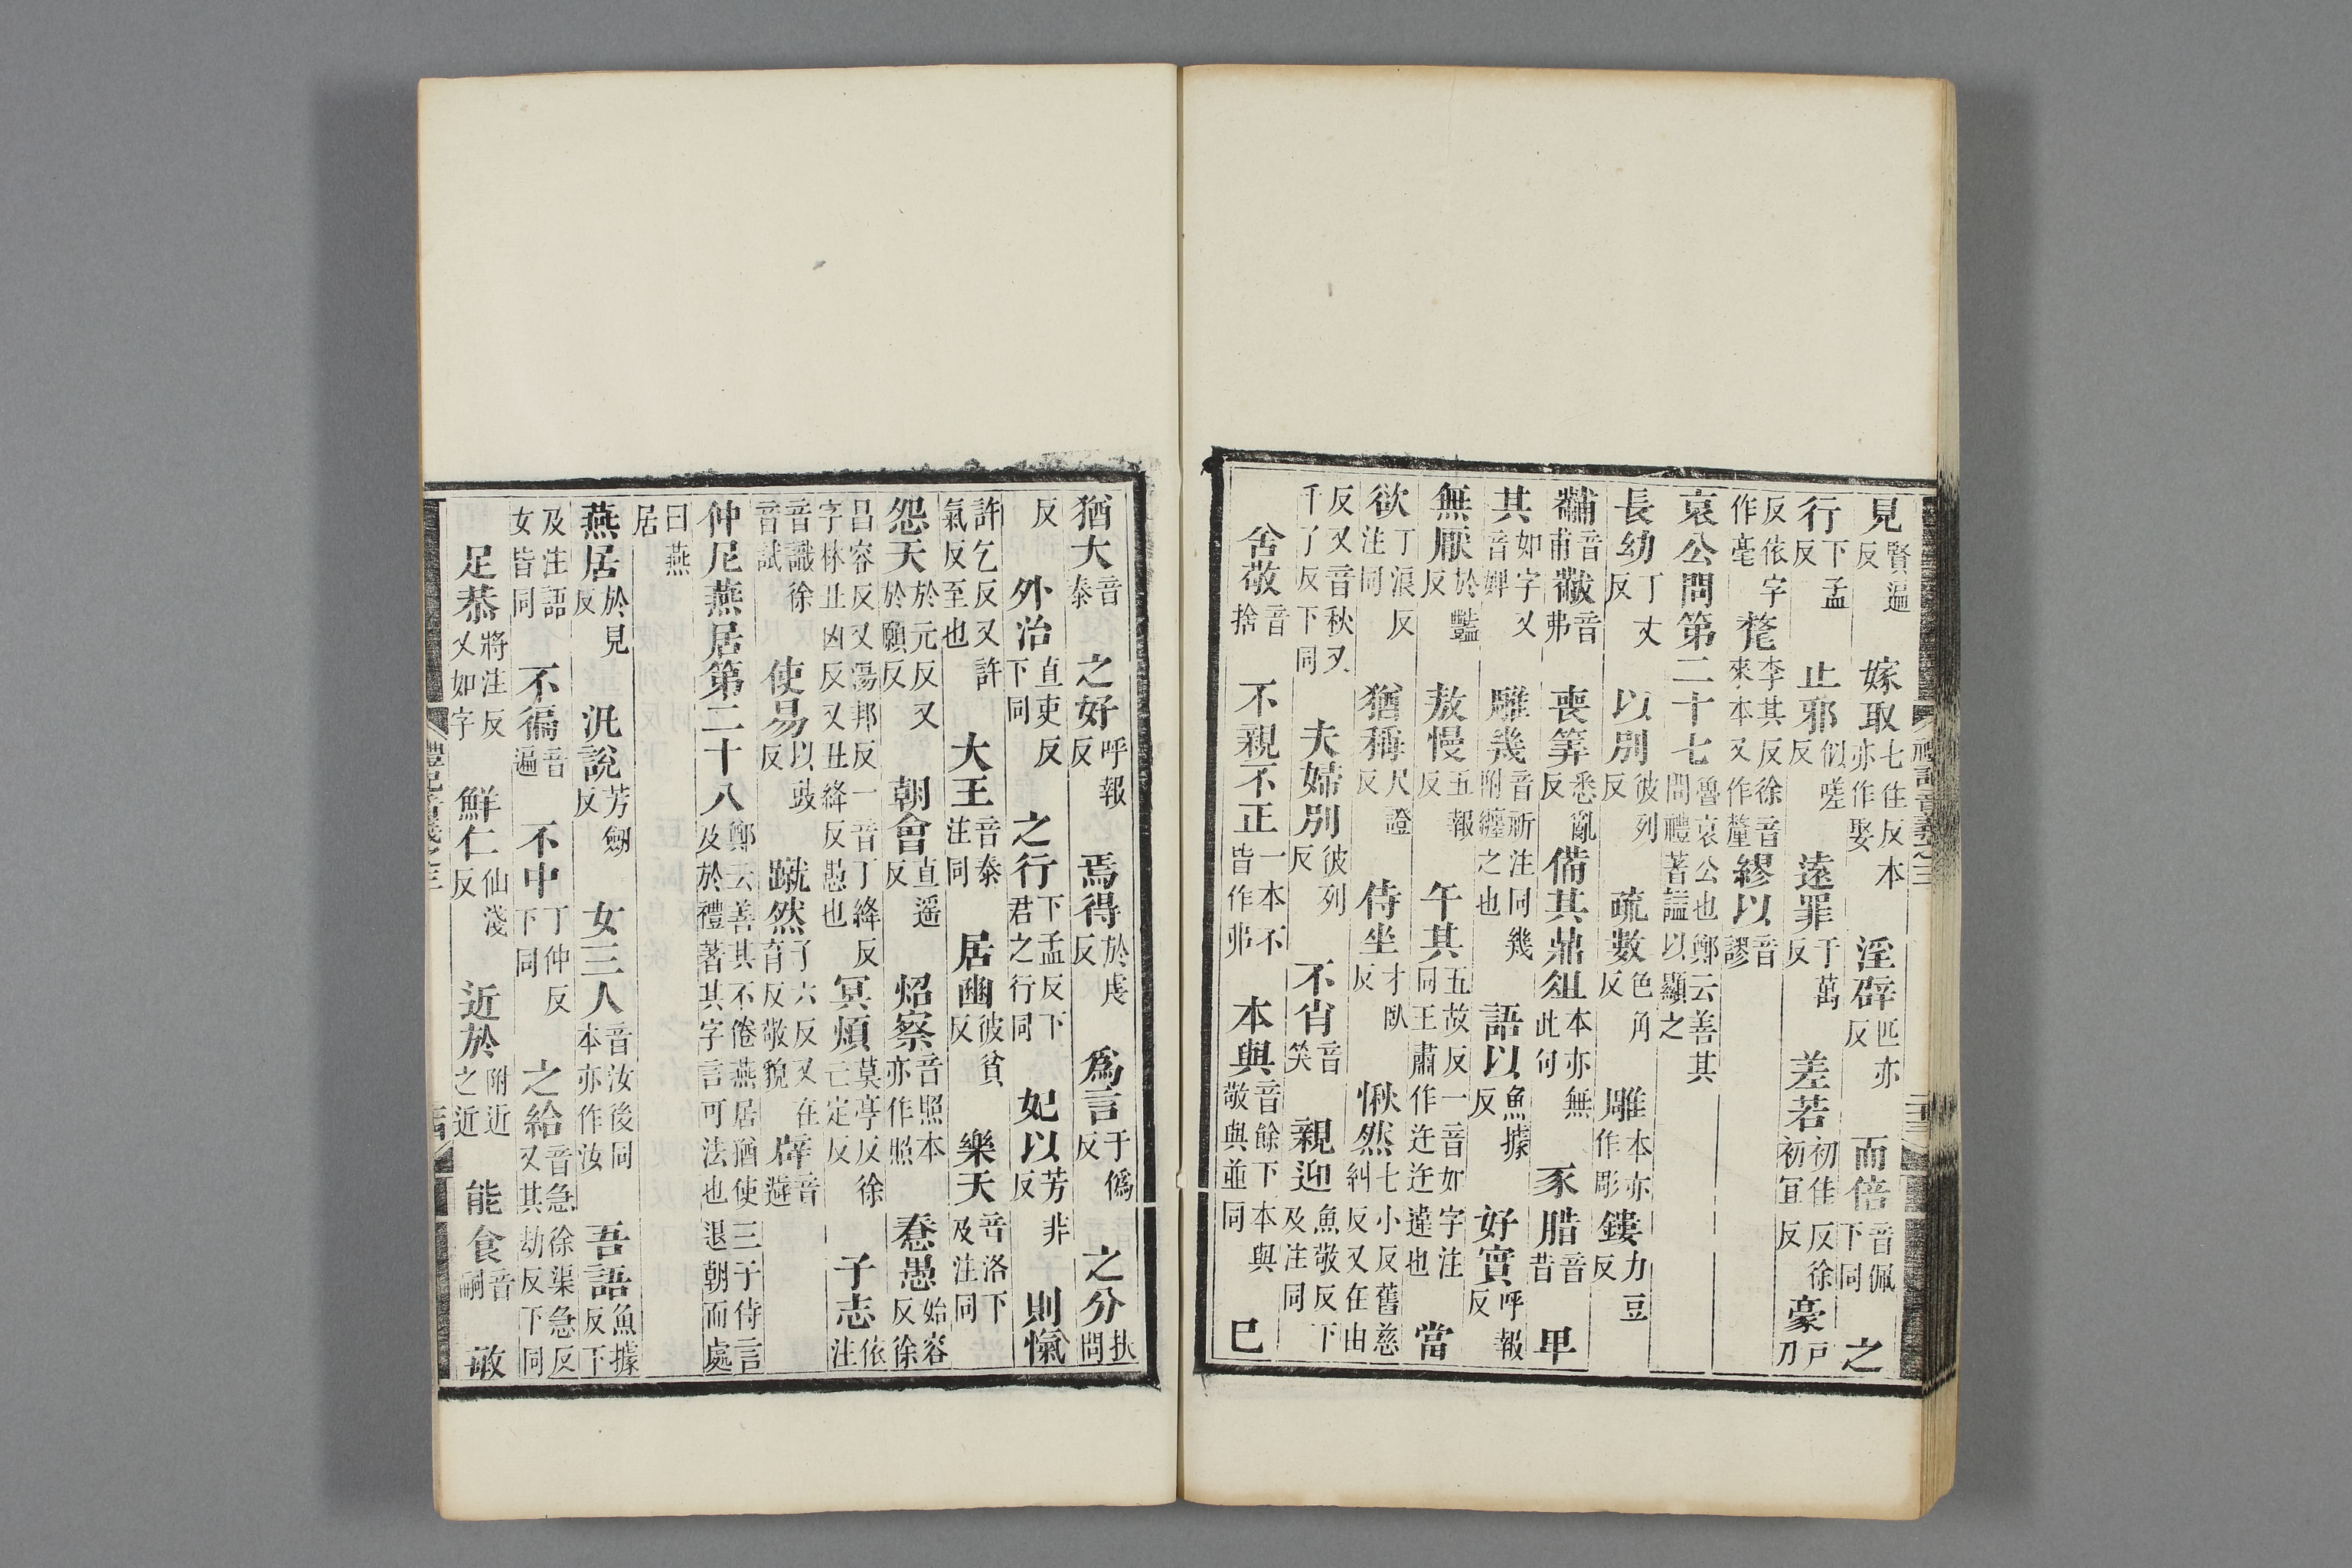 見賢遍反　嫁取七住反本亦作娶　淫辟匹亦反　而倍音佩下同　之
行下孟反　止邪似嗟反　遠罪于萬反　差若初佳反徐初宜反　豪戶刀
反依字作毫　氂李其反徐音來本又作釐　繆以音謬
哀公問第二十七魯哀公也鄭云善其問禮著謚以顯之
長幼丁丈反　以別彼列反　疏數色角反　雕本亦作彫　鏤力豆反
黼音甫　黻音弗　喪筭悉亂反　備其鼎俎本亦無此何　豕腊音昔　卑
其如字又音婢　雕幾音祈注同幾附纏之也　語以魚據反　好實呼報反
無厭於豔反　敖慢五報反　午其五故反一音如字注同王肅作迕迕違也　當
欲丁浪反注同　猶稱尺證反　侍坐才臥反　愀然七小反舊慈糾反又在由
反又音秋又千了反下同　夫婦別彼列反　不肖音笑　親迎魚敬反下及注同
舍敬音捨　不親不正一本不皆作弗　本與音餘下本與敬與並同　已
猶大音泰　之好呼報反　焉得於虔反　為言于偽反　之分扶問
反　外治直吏反下同　之行下孟反下君之行同　妃以芳非反　則愾
許乞反又許氣反至也　大王音泰注同　居豳彼貧反　樂天音洛下及注同
怨天於元反又於願反　朝會直遥反　炤察音照本亦作照　憃愚始容反徐
昌容反又湯邦反一音丁絳反字林丑凶反又丑絳反愚也　冥煩莫亭反徐亡定反　子志依注
音識徐音試　使易以豉反　蹴然子六反又在育反敬貌　辟音避
仲尼燕居第二十八鄭云善其不倦燕居猶使三子侍言及於禮著其字言可法也退朝而處
曰燕居
燕居於見反　汎說芳劒反　女三人音汝後同本亦作汝　吾語魚據反下
及注語女皆同　不徧音遍　不中丁仲反下同　之給音急徐渠急反又其劫反下同
足恭將注反又如字　鮮仁仙淺反　近於附近之近　能食音嗣　敏